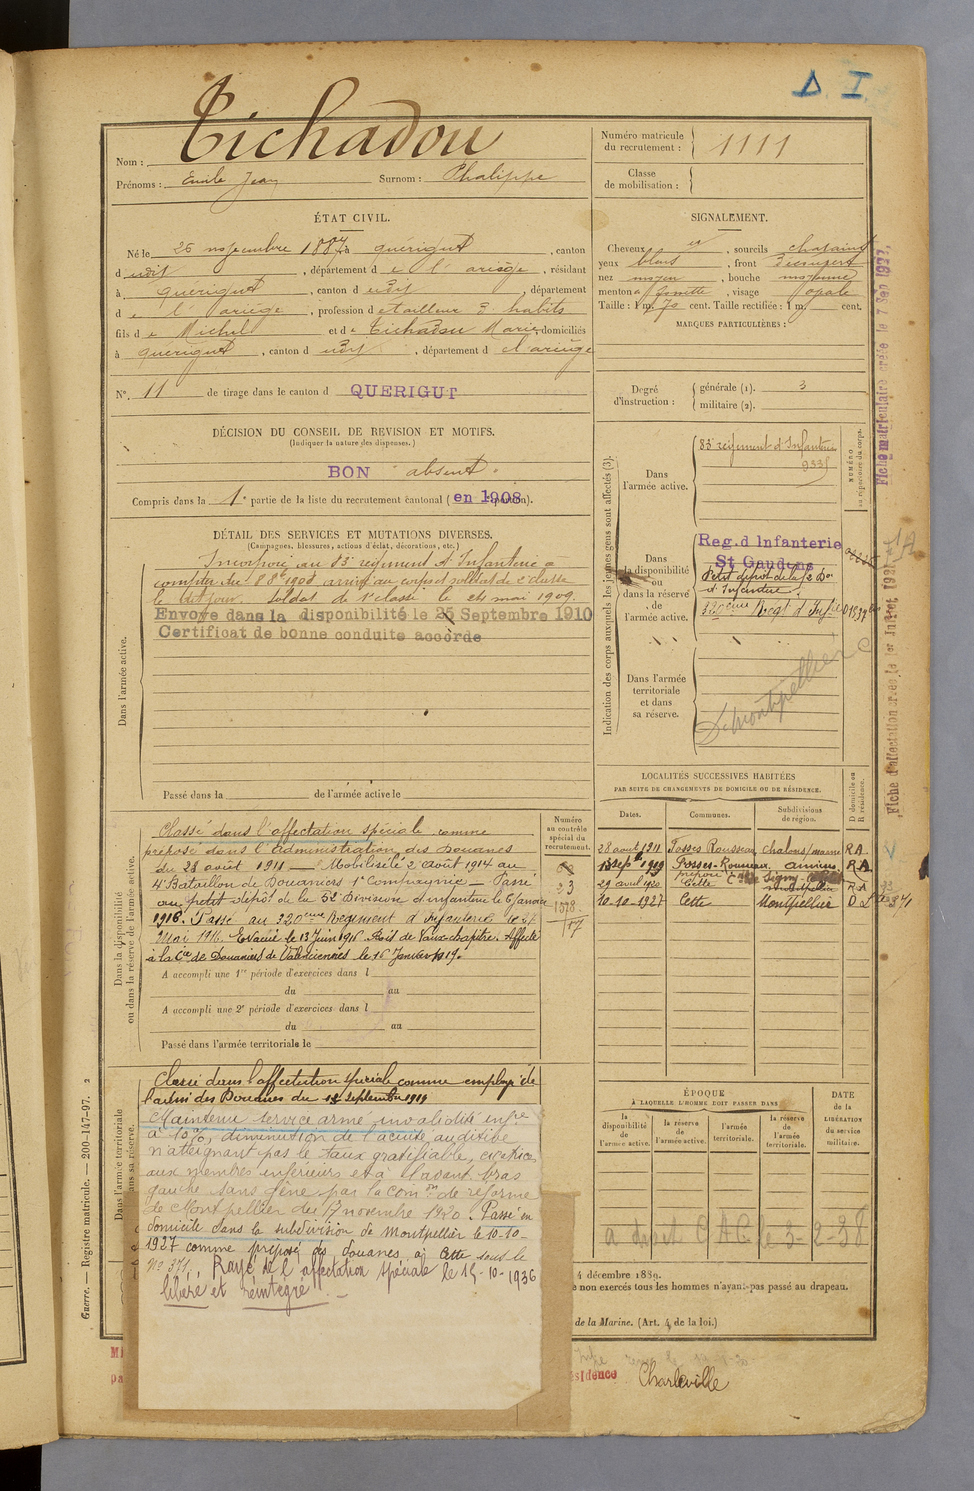 Δ I
Tichadou
Nom :
Prénoms : Emile Jean Surnom : Phalippe
Numéro matricule du recrutement : 1111
Classe de mobilisation :
ÉTAT CIVIL.
Né le 25 novembre 1887 à Quérigut, canton
d udit, département d e l'ariège, résidant
à Quérigut, canton d udit, département
d e l'ariège, profession d e tailleur d habits
fils d e Michel et d e Tichadou Marie domiciliés
à quérigut, canton d udit, département d e l'ariège
N° 11 de tirage dans le canton d QUERIGUT
SIGNALEMENT.
Cheveux et, sourcils chatains
yeux bleus, front découvert
nez moyen, bouche moyenne
menton à fossette, visage ovale
Taille : 1 m. 70 cent. Taille rectifiée : 1 m. cent.
MARQUES PARTICULIÈRES :
Degré d'instruction : générale (1). 3
militaire (2).
DÉCISION DU CONSEIL DE REVISION ET MOTIFS.
(Indiquer la nature des dispenses.)
BON absent.
Compris dans la 1e partie de la liste du recrutement cantonal (en 1908).
DÉTAIL DES SERVICES ET MUTATIONS DIVERSES.
(Campagnes, blessures, actions d'éclat, décorations, etc.)
Incorporé au 83e régiment d'Infanterie à
compter du 8 8bre 1908 arrivé au corps et soldat de 2e classe
le dit jour. Soldat de 1e classe le 24 mai 1909.
Envoyé dans la disponibilité le 25 Septembre 1910
Certificat de bonne conduite accordé
Dans l'armée active.
Passé dans la de l'armée active le
Indication des corps auxquels les jeunes gens sont affectés (3).
Dans l'armée active. 83e régiment d'Infanterie
NUMÉRO au répertoire du corps.
Dans la disponibilité ou dans la réserve de l'armée active.
Reg. d Infanterie
St Gaudens
Petit dépôt de la 52 Don
d'Infanterie
320ème Regt d'Infie
Dans l'armée territoriale et dans sa réserve.
Montpellier
Fiche matriculaire créée le 7 Sep 1927
Fiche d'affectation créée le 1er Juillet 1921
LOCALITÉS SUCCESSIVES HABITÉES
PAR SUITE DE CHANGEMENTS DE DOMICILE OU DE RÉSIDENCE.
Dates. Communes. Subdivisions de région. D domicile ou R résidence.
28 août 1911 Fosses Rousseau chalons/marne R A
13 Sepbre 1919 Fosses-Rousseau amiens R A
29 avril 1920 Cette Montpellier R A
10-10-1927 Cette Montpellier D
Dans la disponibilité ou dans la réserve de l'armée active.
Classé dans l'affectation spéciale comme
préposé dans l'administration des Douanes
du 28 août 1911 — Mobilisé le 2 août 1914 au
4e Bataillon de Douaniers 1e Compagnie — Passé
au petit dépôt de la 52 Division d'infanterie le 6 janvier
1916. Passé au 320ème Régiment d'Infanterie le 27
Mai 1916. Evacué le 13 Juin 1916. Affecté
à la Cie de Douaniers de Valenciennes le 16 Janvier 1919.
Numéro au contrôle spécial du recrutement.
23
1578
A accompli une 1re période d'exercices dans l
du au
A accompli une 2e période d'exercices dans l
du au
Passé dans l'armée territoriale le
Classé dans l'affectation spéciale comme employé de
l'admi des Douanes du 13 Septembre 1919
Maintenu service armé invalidité infre
à 10%, diminution de l'acuité auditive
n'atteignant pas le taux gratifiable, cicatrices
aux membres inférieurs et à l'avant bras
gauche sans gêne par la Comon de réforme
de Montpellier du 17 novembre 1920. Passé en
domicile dans la subdivision de Montpellier le 10-10-
1927 comme préposé des douanes à Cette sous le
No 371. Rayé de l'affectation spéciale le 15-10-1936
libéré et réintégré.
ÉPOQUE
À LAQUELLE L'HOMME DOIT PASSER DANS
la disponibilité de l'armée active. la réserve de l'armée active. l'armée territoriale. la réserve de l'armée territoriale.
DATE de la LIBÉRATION du service militaire.
4 décembre 1889.
e non exercés tous les hommes n'ayant pas passé au drapeau.
de la Marine. (Art. 4 de la loi.)
Charleville
Guerre. — Registre matricule. — 200-147-97.